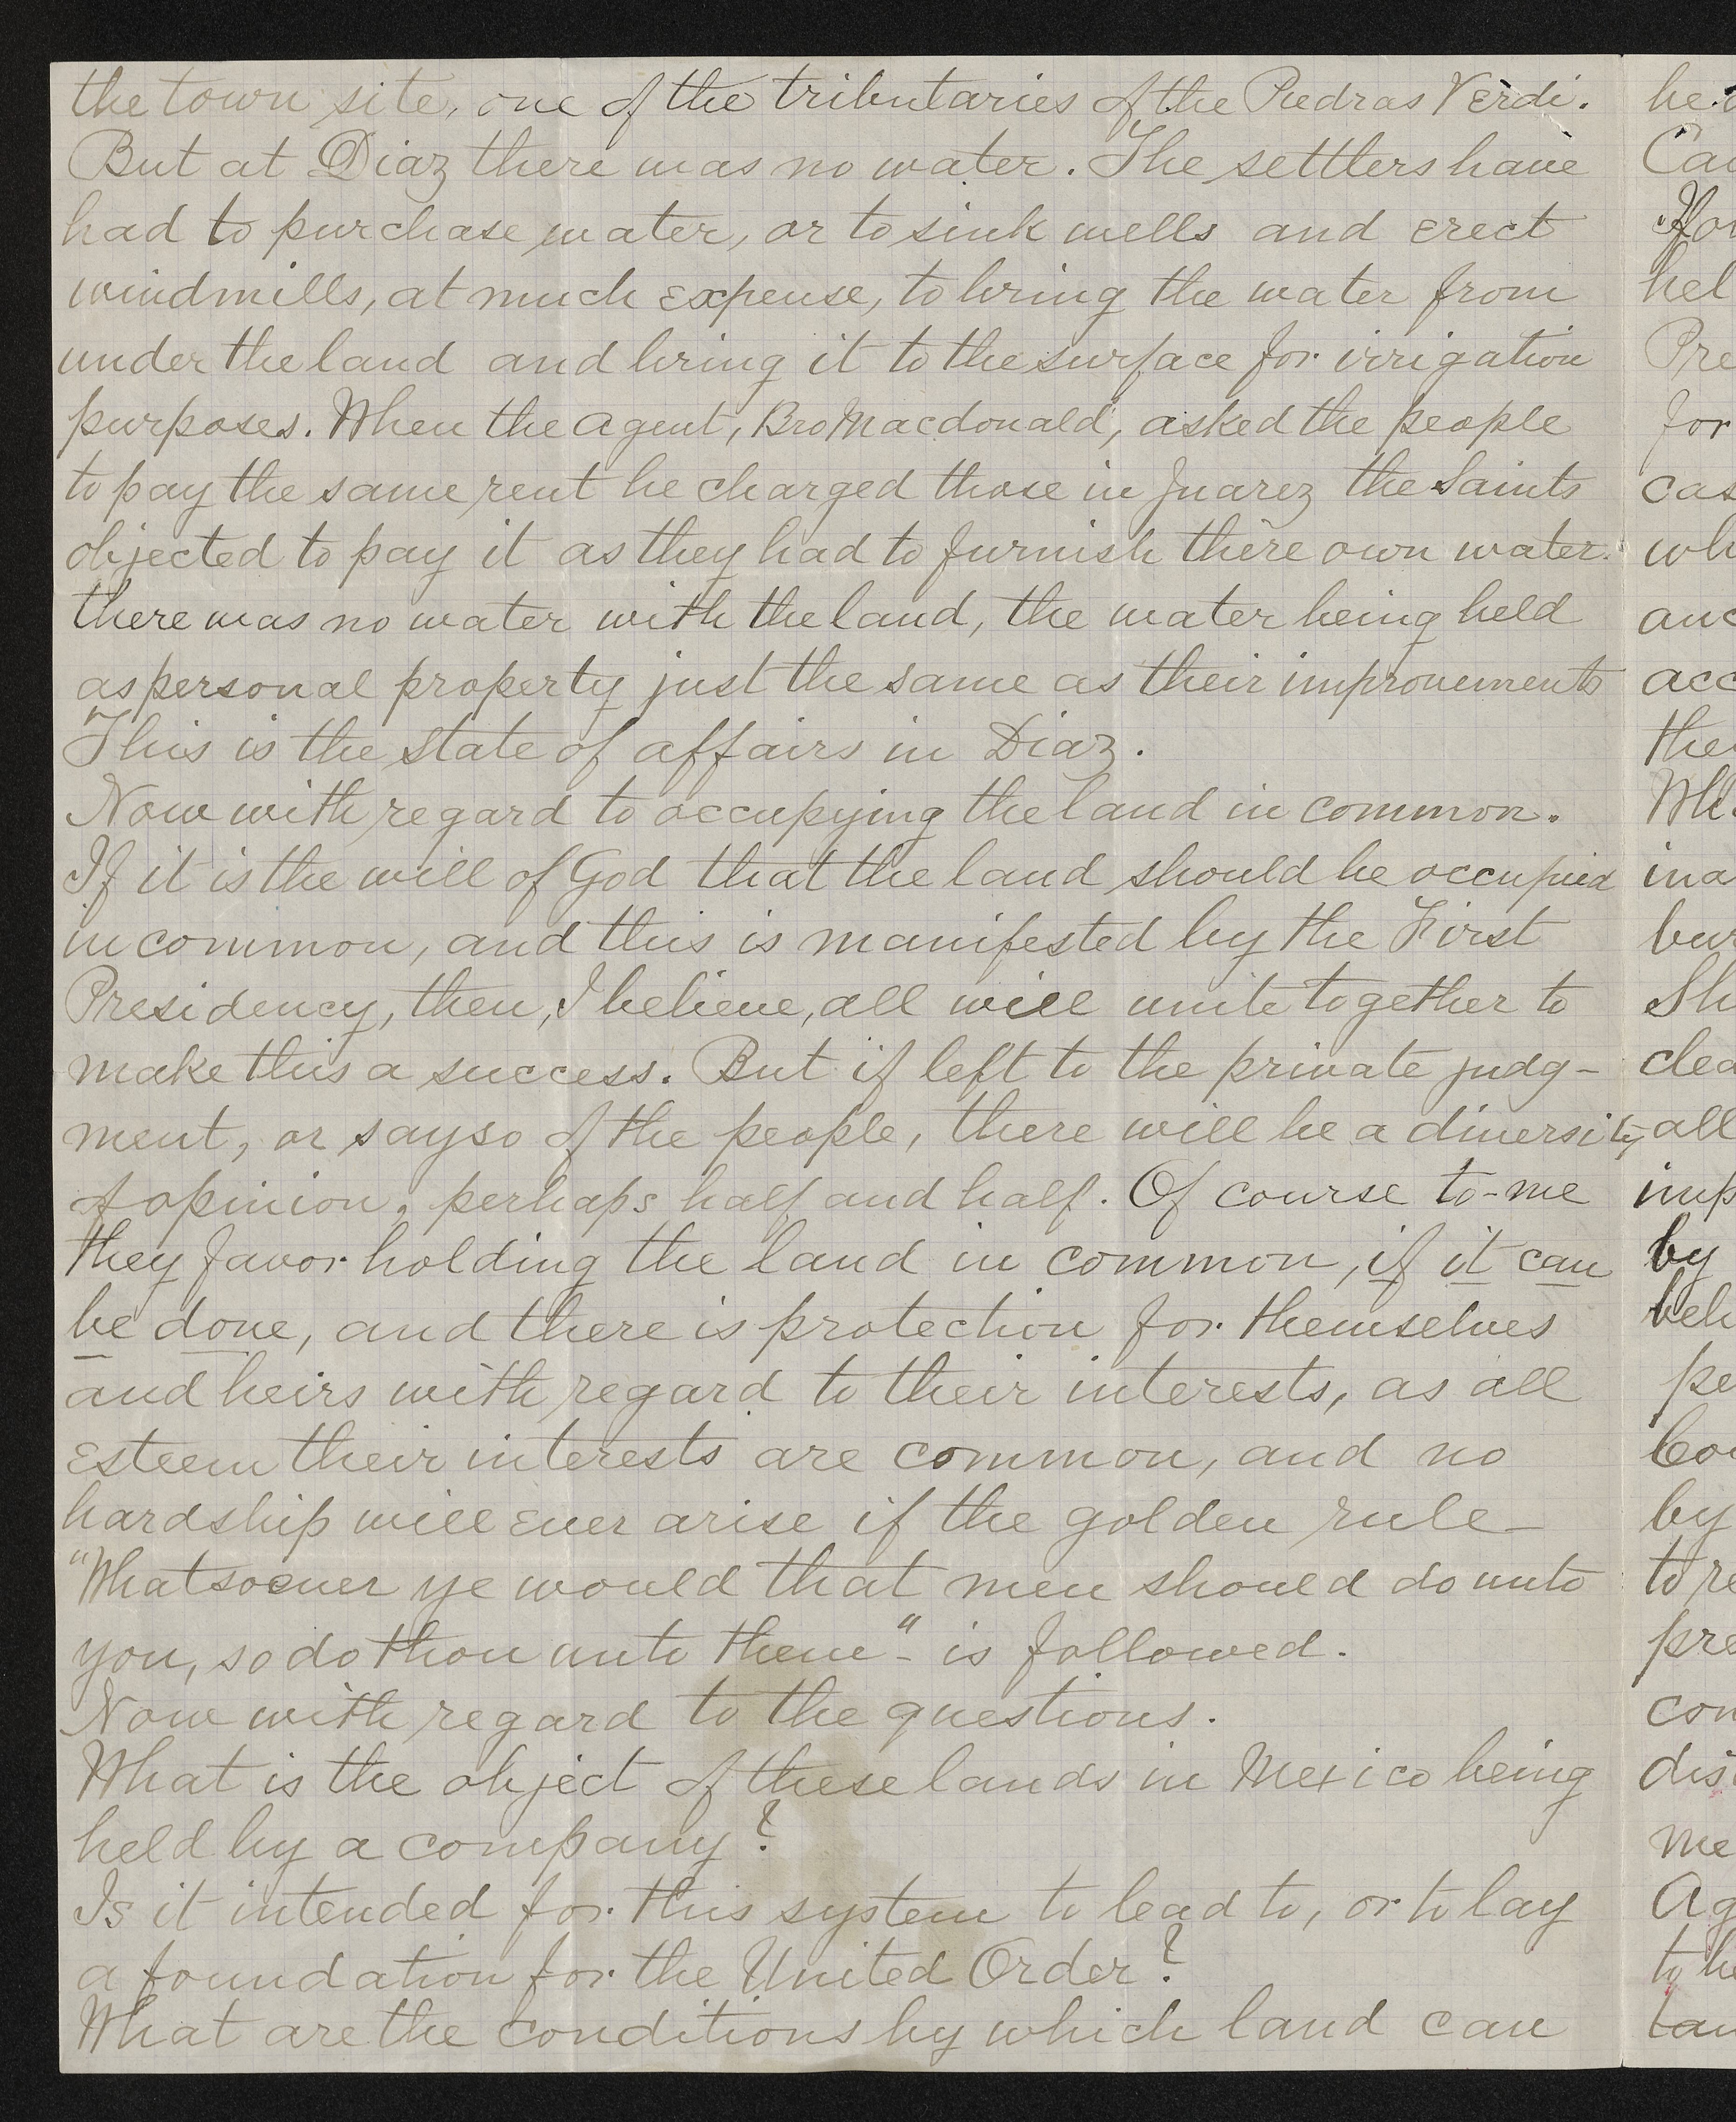 the town site, one of the tributaries of the Piedras Verdi.
But at Diaz there was no water. The settlers have
had to purchase water, or to sink wells and erect
windmills, at much expense, to bring the water from
under the land and bring it to the surface for irrigation
purposes. When the agent, Bro Macdonald, asked the people
to pay the same rent he charged those in Juarez the Saints
objected to pay it as they had to furnish there own water.
there was no water with the land, the water being held
as personal property just the same as their improvements
This is the state of affairs in Diaz.
Now with regard to occupying the land in common.
If it is the will of God that the land should be occupied
in common, and this is manifested by the First
Presidency, then, I believe, all will unite together to
make this a success. But if left to the private judg-
ment, or sayso of the people, there will be a diversity
of opinion, perhaps half and half. Of course to-me
they favor holding the land in common, if it can
be done, and there is protection for themselves
and heirs with regard to their interests, as all
esteem their interests are common, and no
hardship will ever arise if the golden rule—
"Whatsoever ye would that men should do unto
you, so do thou unto them"- is followed.
Now with regard to the questions.
What is the object of these lands in Mexico being
held by a company?
Is it intended for this system to lead to, or to lay
a foundation for the United Order?
What are the conditions by which land can
he
Cau
"How
hel
Pre
for
cas
wh
and
acc
the
Whe
ina
bur
Sh
clea
all
imp
by
beli
pe
Cou
by
to re
pre
con
dis
me
Ag
to he
lan